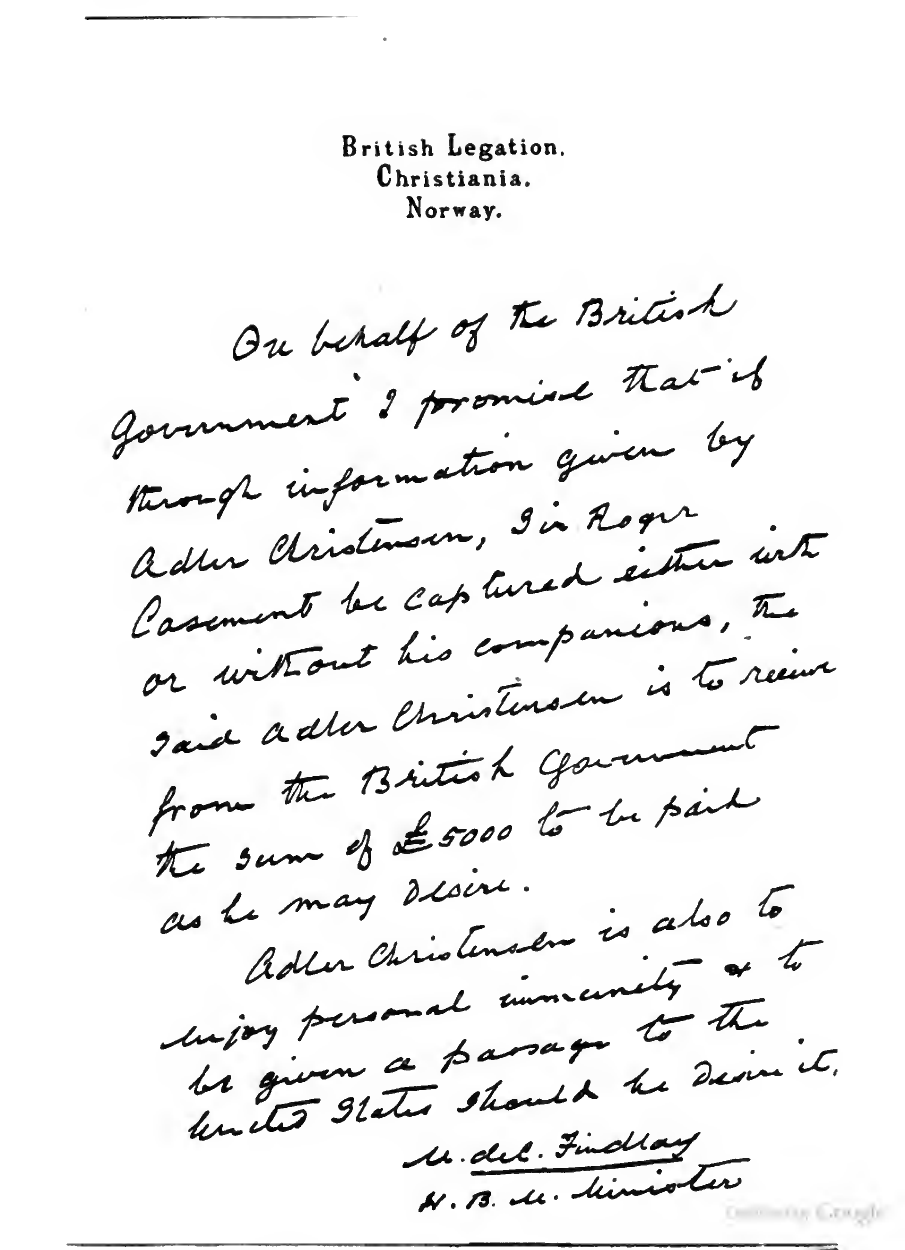 British Legation.
Christiania.
Norway.
On behalf of the British
Government I promise that if
through information given by
Adler Christensen, Sir Roger
Casement be captured either with
or without his companions, the
said Adler Christensen is to receive
from the British Government
the sum of £5000 to be paid
as he may desire.
Adler Christensen is also to
enjoy personal immunity & to
be given a passage to the
United States should he desire it.
M. de C. Findlay
H. B. M. Minister
Google